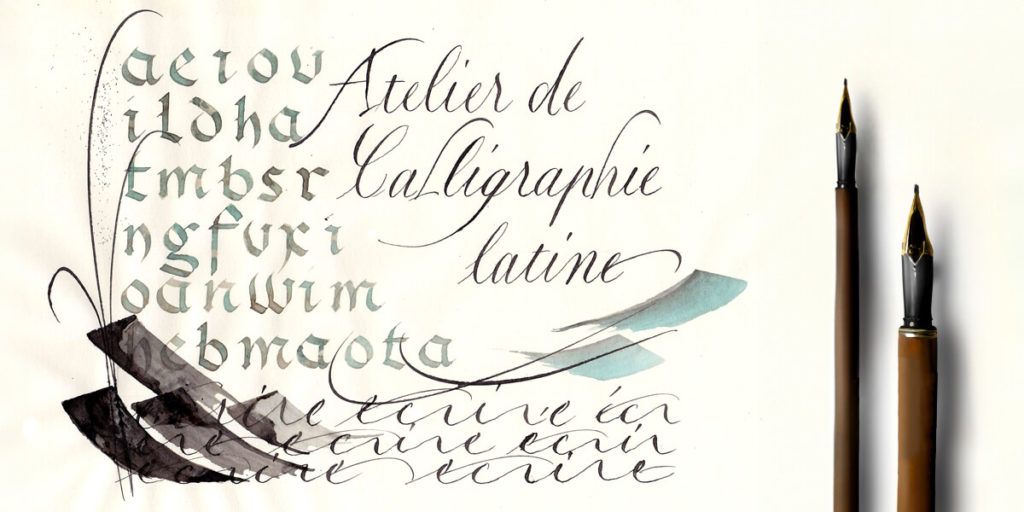 aeiou
ildha
tmbsr
ngfvxi
oanwim
hebmaota
Atelier de
Calligraphie
latine
écrire écrire écr
ire écrire écrir
écrire écrire